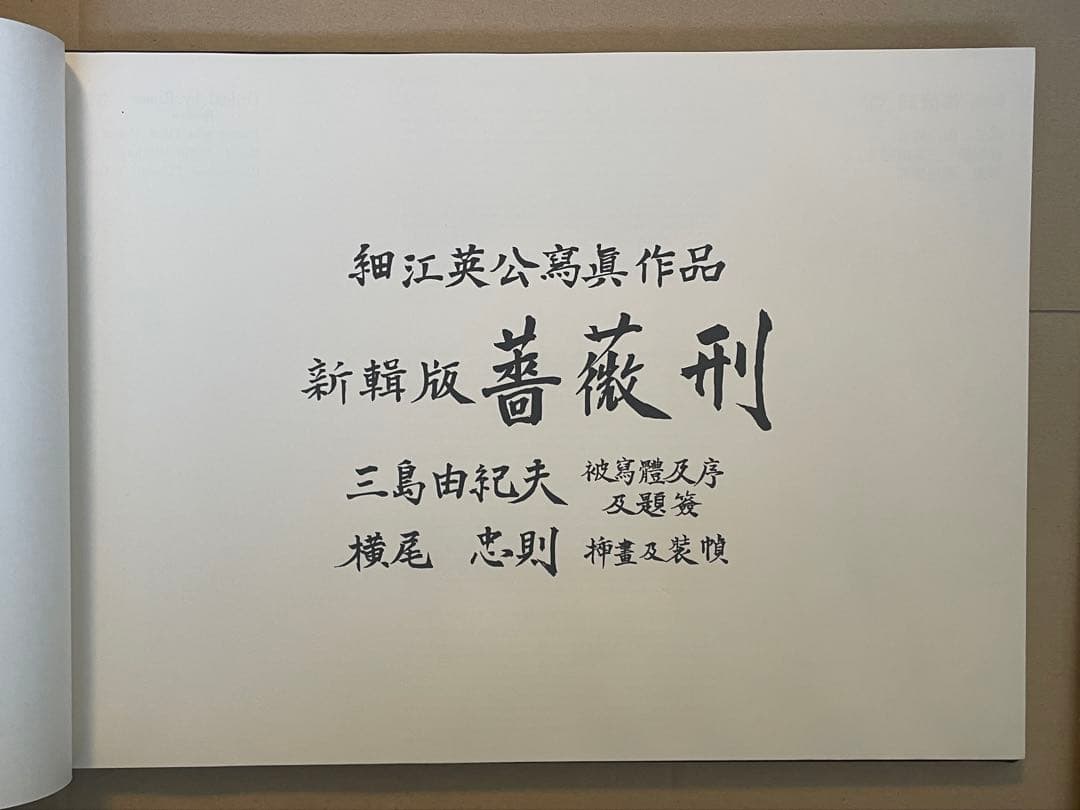 細江英公寫眞作品
新輯版 薔薇刑
三島由紀夫 被寫體及序
及題簽
横尾 忠則 挿畫及装幀